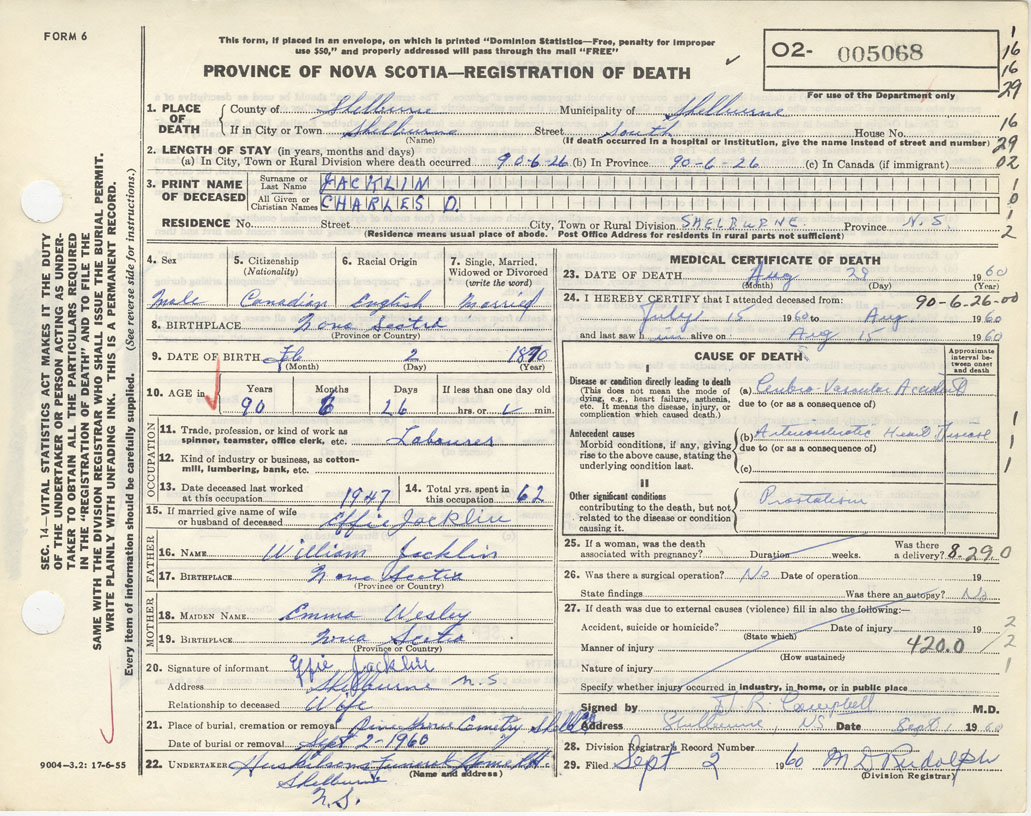 FORM 6
This form, if placed in an envelope, on which is printed "Dominion Statistics—Free, penalty for improper
use $50," and properly addressed will pass through the mail "FREE"
PROVINCE OF NOVA SCOTIA—REGISTRATION OF DEATH
O2- 005068
For use of the Department only
1
16
16
29
16
29
02
1
0
1
2
1. PLACE OF DEATH
County of Shelburne Municipality of Shelburne
If in City or Town Shelburne Street South House No.
(Name) (If death occurred in a hospital or Institution, give the name instead of street and number)
2. LENGTH OF STAY (in years, months and days)
(a) In City, Town or Rural Division where death occurred 90-6-26 (b) In Province 90-6-26 (c) In Canada (if immigrant)
3. PRINT NAME OF DECEASED
Surname or Last Name JACKLIN
All Given or Christian Names CHARLES D.
RESIDENCE No. Street City, Town or Rural Division SHELBURNE Province N.S.
(Residence means usual place of abode. Post Office Address for residents in rural parts not sufficient)
4. Sex
Male
5. Citizenship
(Nationality)
Canadian
6. Racial Origin
English
7. Single, Married,
Widowed or Divorced
(write the word)
Married
8. BIRTHPLACE Nova Scotia
(Province or Country)
9. DATE OF BIRTH Feb 2 1870
(Month) (Day) (Year)
10. AGE in
Years Months Days If less than one day old
90 6 26 hrs. or min.
OCCUPATION
11. Trade, profession, or kind of work as
spinner, teamster, office clerk, etc. Labourer
12. Kind of industry or business, as cotton-
mill, lumbering, bank, etc.
13. Date deceased last worked
at this occupation 1947
14. Total yrs. spent in
this occupation 62
15. If married give name of wife
or husband of deceased Effie Jacklin
FATHER
16. NAME William Jacklin
17. BIRTHPLACE Nova Scotia
(Province or Country)
MOTHER
18. MAIDEN NAME Emma Wesley
19. BIRTHPLACE Nova Scotia
(Province or Country)
20. Signature of informant Effie Jacklin
Address Shelburne N.S
Relationship to deceased Wife
21. Place of burial, cremation or removal Pine Grove Cemetry
Date of burial or removal Sept 2-1960
22. UNDERTAKER Huskilsons Funeral Home
(Name and address)
Shelburne
N.S.
9004-3.2: 17-6-55
MEDICAL CERTIFICATE OF DEATH
23. DATE OF DEATH Aug 28 1960
(Month) (Day) (Year)
24. I HEREBY CERTIFY that I attended deceased from: 90-6-26-00
July 15 1960 to Aug 1960
and last saw him alive on Aug 15 1960
CAUSE OF DEATH
Approximate
interval between
onset and death
I
Disease or condition directly leading to death
(This does not mean the mode of
dying, e.g., heart failure, asthenia,
etc. It means the disease, injury, or
complication which caused death.)
(a) Cerebro-Vascular Accident
due to (or as a consequence of)
Antecedent causes
Morbid conditions, if any, giving
rise to the above cause, stating the
underlying condition last.
(b) Arteriosclerotic Heart Disease
due to (or as a consequence of)
(c)
1
1
1
II
Other significant conditions
contributing to the death, but not
related to the disease or condition
causing it.
25. If a woman, was the death
associated with pregnancy? Duration weeks. Was there
a delivery? 8.29.0
26. Was there a surgical operation? No Date of operation 19
State findings Was there an autopsy? No
27. If death was due to external causes (violence) fill in also the following:—
Accident, suicide or homicide? Date of injury 19 2
(State which)
Manner of injury 420.0 2
(How sustained)
Nature of injury 1
Specify whether injury occurred in industry, in home, or in public place
Signed by R. Campbell M.D.
Address Shelburne, NS Date Sept 1 1960
28. Division Registrar's Record Number
29. Filed Sept 2 1960 M D Rudolph
(Division Registrar)
SEC. 14—VITAL STATISTICS ACT MAKES IT THE DUTY
OF THE UNDERTAKER OR PERSON ACTING AS UNDER-
TAKER TO OBTAIN ALL THE PARTICULARS REQUIRED
IN THE "REGISTRATION OF DEATH" AND TO FILE THE
SAME WITH THE DIVISION REGISTRAR WHO SHALL ISSUE THE BURIAL PERMIT.
WRITE PLAINLY WITH UNFADING INK. THIS IS A PERMANENT RECORD.
Every item of information should be carefully supplied. (See reverse side for instructions.)